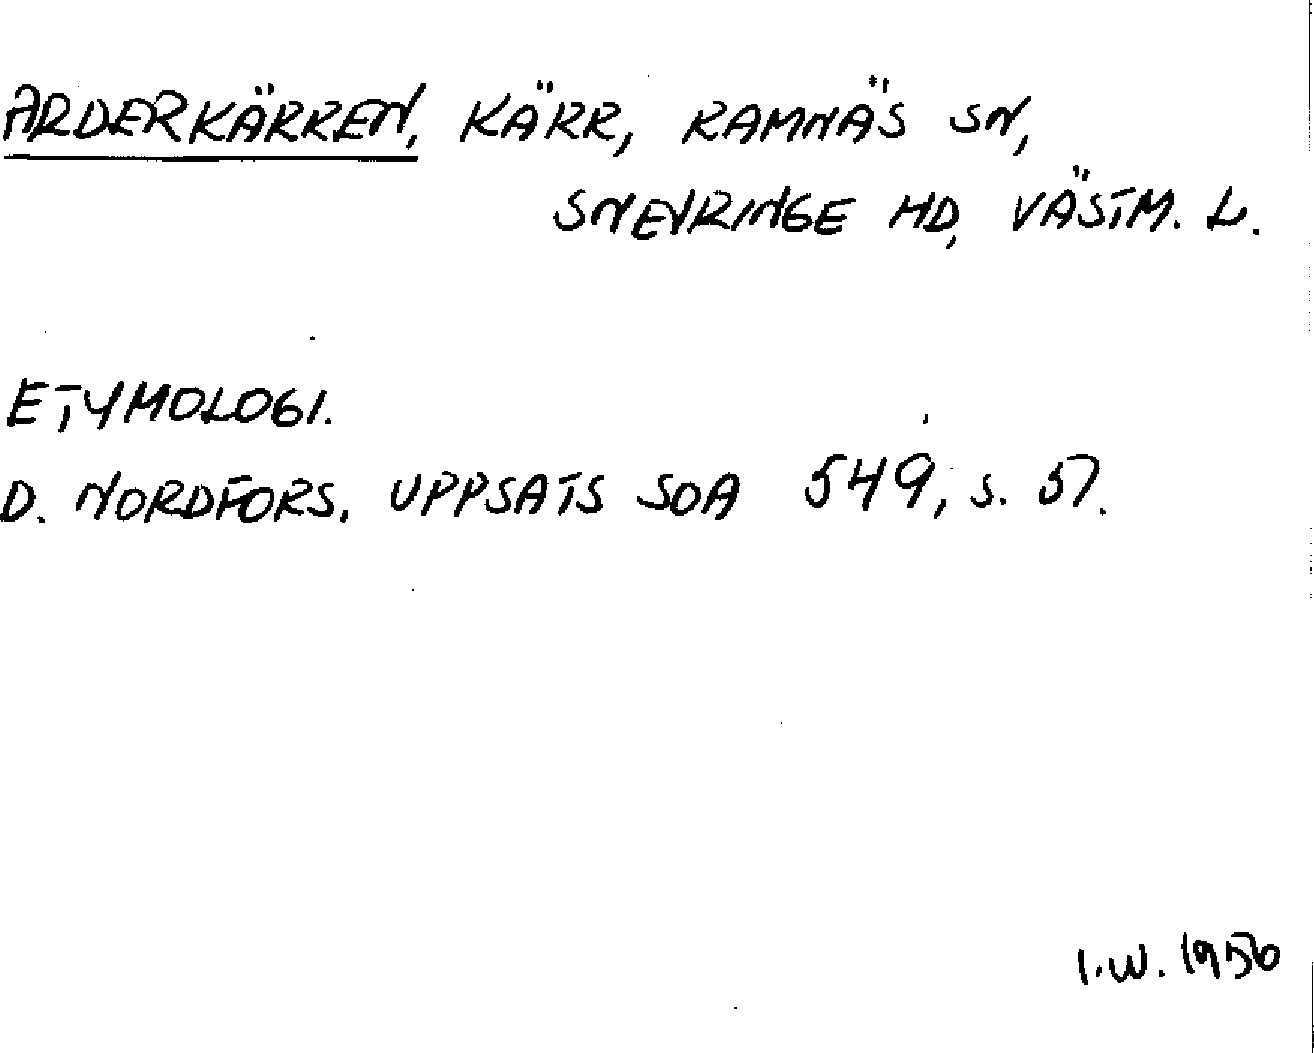 ARDERKÄRREN, KÄRR, RAMNÄS SN,
SNEVRINGE HD, VÄSTM. L.
ETYMOLOGI.
D. NORDFORS. UPPSATS SOA 549, S. 57.
I.W. 1956